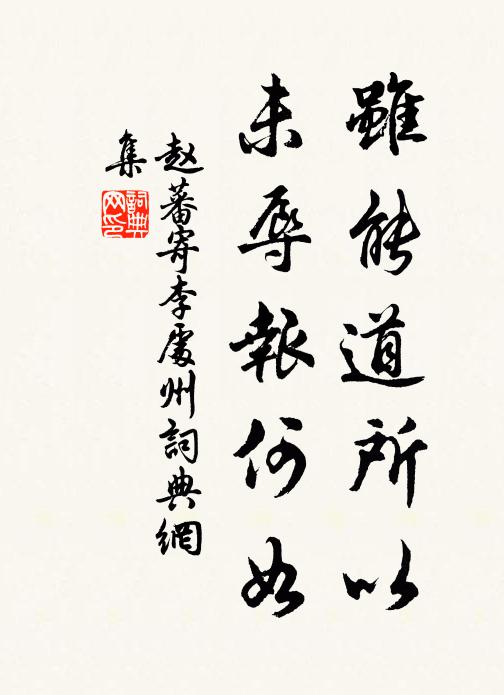 雖能道所以
未辱報何如
赵蕃寄李處州詞典網
集
詞典
网印